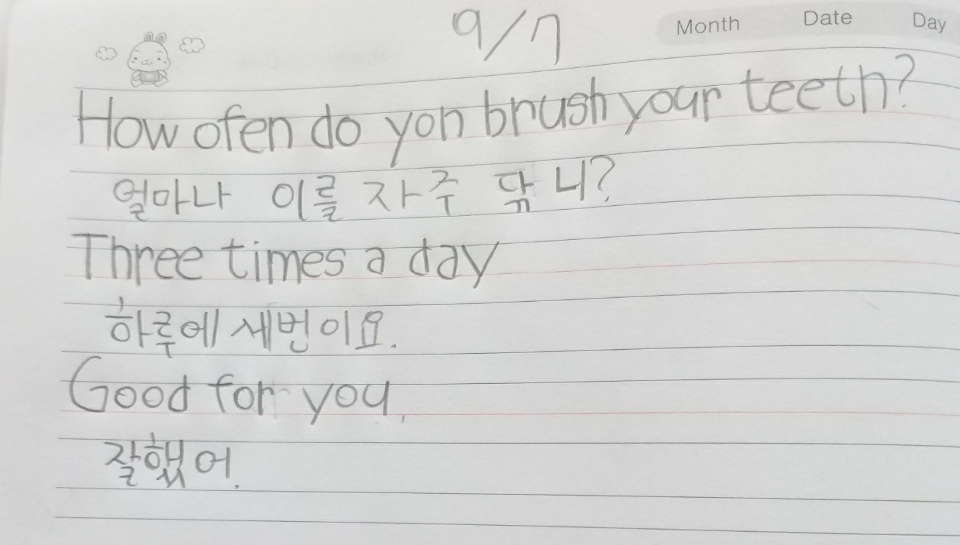 9/7 Month Date Day
How ofen do yon brush your teeth?
얼마나 이를 자주 닦니?
Three times a day
하루에 세번이요.
Good for you.
잘했어.